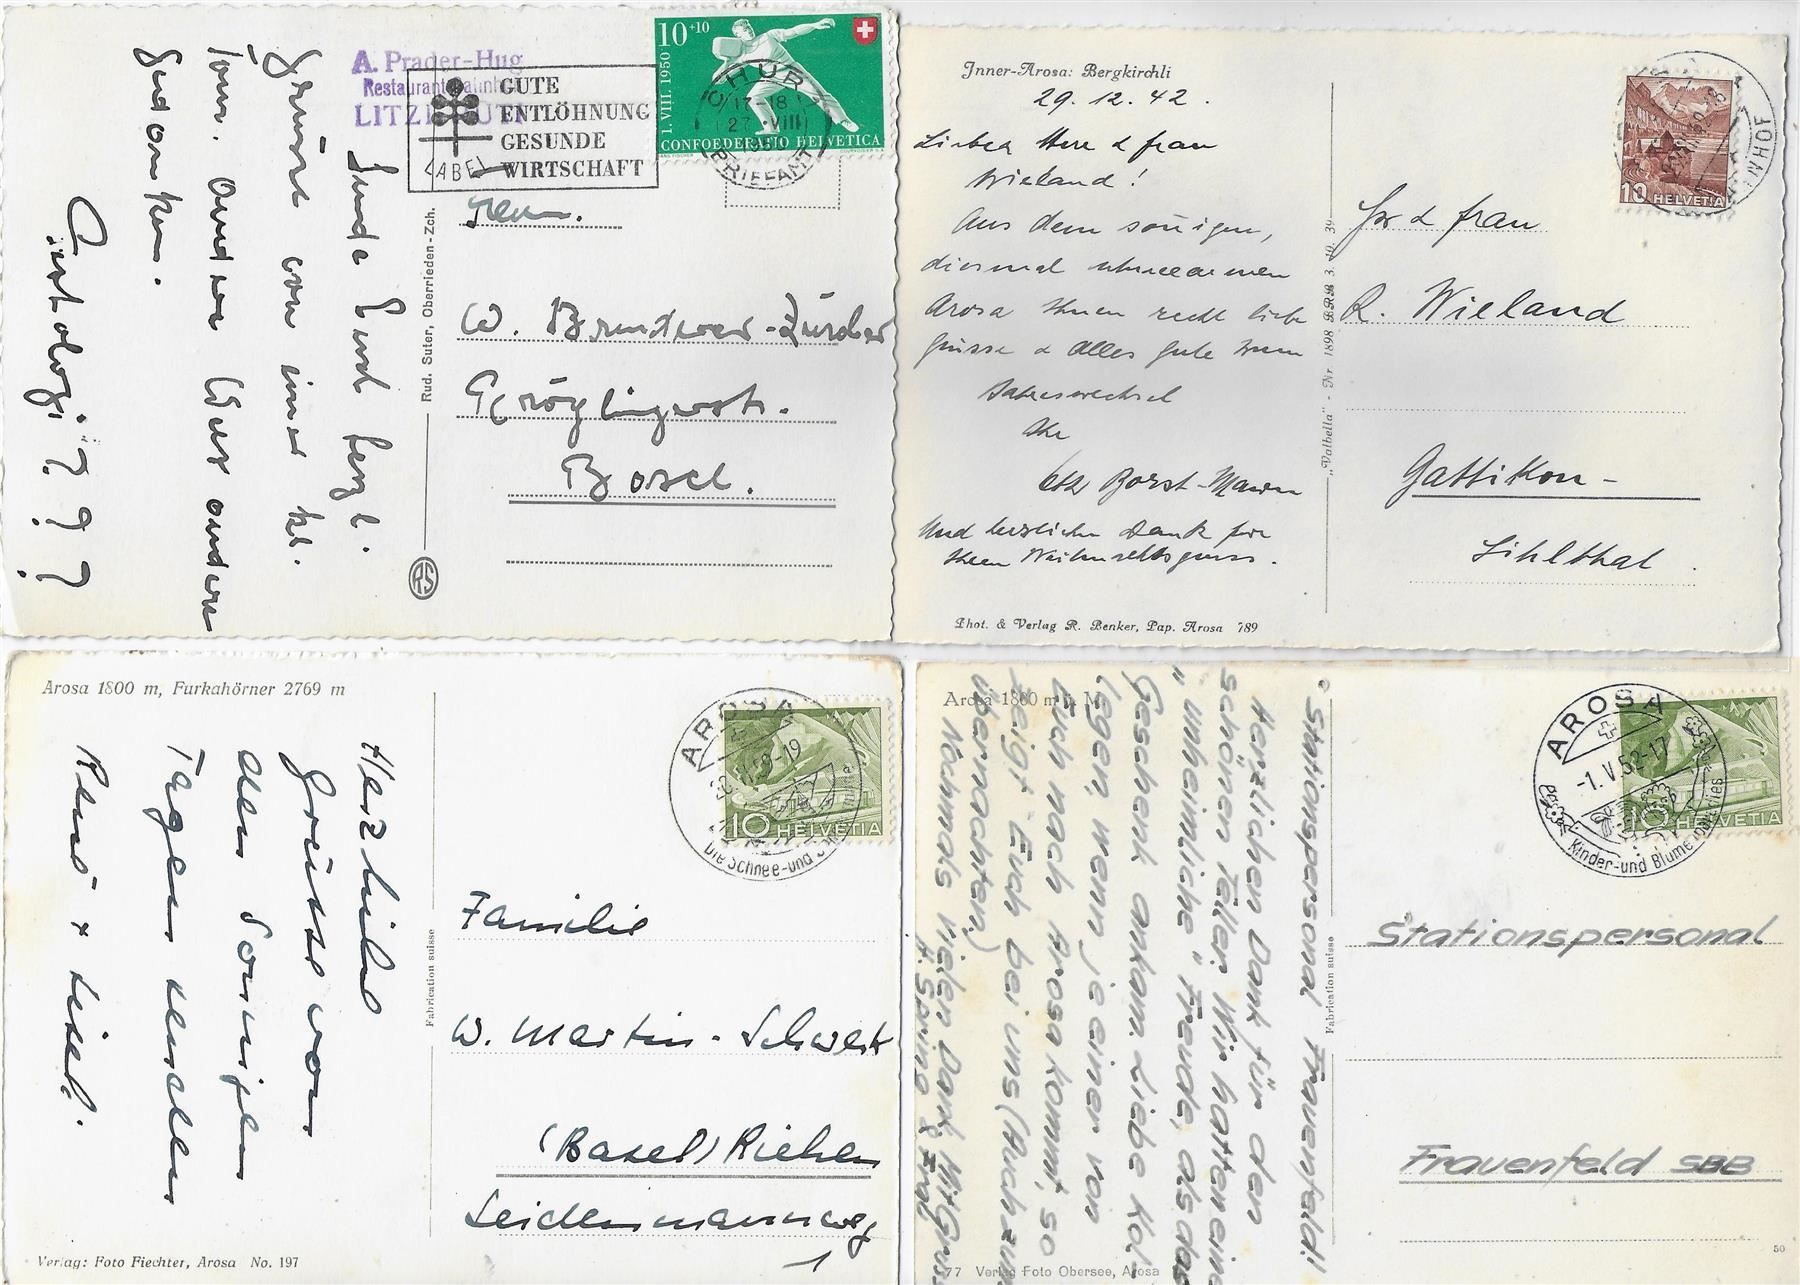 A. Prader-Hug
Restaurant Bahnhof
LITZIRÜTI
GUTE
ENTLÖHNUNG
GESUNDE
WIRTSCHAFT
LABEL
10+10
1. VIII. 1950
CONFOEDERATIO HELVETICA
CHUR 1
17-18
27. VIII
BRIEFANN
Sende Euch herzl.
Grüsse von einer kl.
Tour. Anderer Wert andere
Gedanken.
Rud. Suter, Oberrieden-Zch.
RS
Herrn.
W. -Zürcher
Basel.
Inner-Arosa: Bergkirchli
29. 12. 42.
Lieber Herr & Frau
Wieland!
Aus dem soñigen,
diesmal schneearmen
Arosa Ihnen recht liebe
Grüsse & Alles Gute zum
Jahreswechsel
Ihr
Und herzlichen Dank für
Ihren Weihnachtsgruss.
Phot. & Verlag R. Benker, Pap. Arosa 789
„Valbella" - Nr. 1898 BRB 3. 10. 39
10 HELVETIA
Hr & Frau
R. Wieland
Gattikon-
Sihlthal.
Arosa 1800 m, Furkahörner 2769 m
Herzliche
Grüsse von
den sonnigen
Tagen senden
Verlag: Foto Fiechter, Arosa No. 197
Fabrication suisse
AROSA
10 HELVETIA
Die Schnee- und
Familie
W. Martin-Schwenk
(Basel) Riehen
Seidenmannweg
1
Arosa 1800 m ü. M.
"Stationspersonal Frauenfeld!
Herzlichen Dank für den
schönen Teller. Wir hatten eine
"unheimliche" Freude, als das
Geschenk ankam. Liebe Kol-
legen, wenn je einer von
Euch nach Arosa kommt, so
zeigt Euch bei uns (Auch zum
übernachten.)
Nochmals vielen Dank Mit Gruss
77 Verlag Foto Obersee, Arosa
Fabrication suisse
AROSA
-1. V. 52-17
Kinder- und Blumenparadies
10 HELVETIA
Stationspersonal
Frauenfeld SBB
50